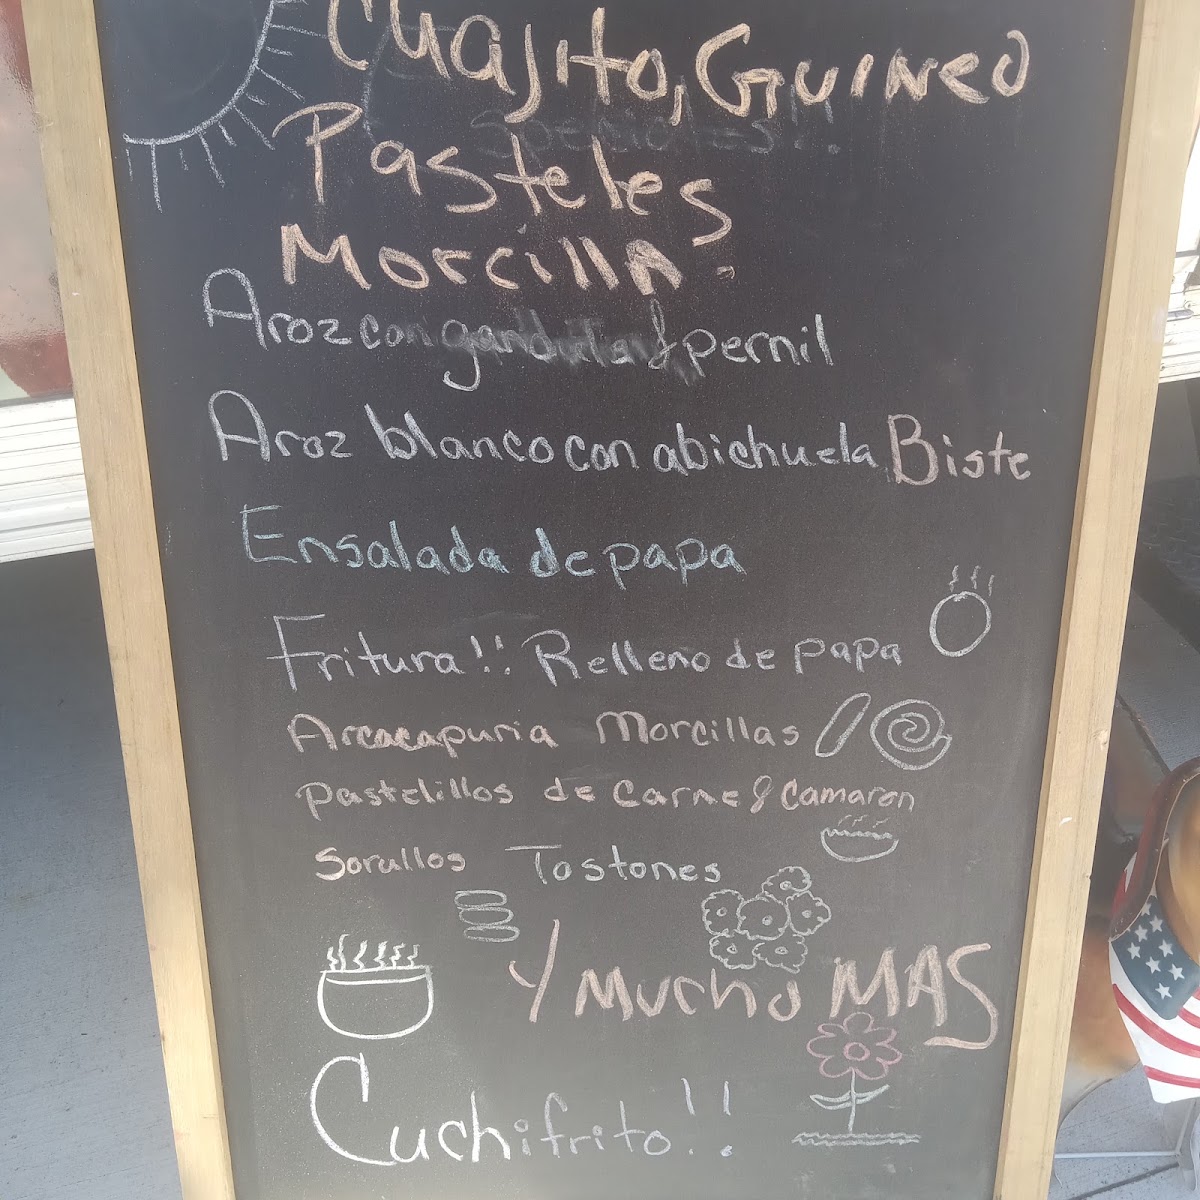 Cuajito, Guineo
Especiales!!
Pasteles
Morcilla.
Aroz con gandules & pernil
Aroz blanco con abichuela Biste
Ensalada de papa
Fritura!! Relleno de papa
Arcacapuria Morcillas
Pastelillos de carne & camaron
Sorullos Tostones
Y Mucho MAS
Cuchifrito!!